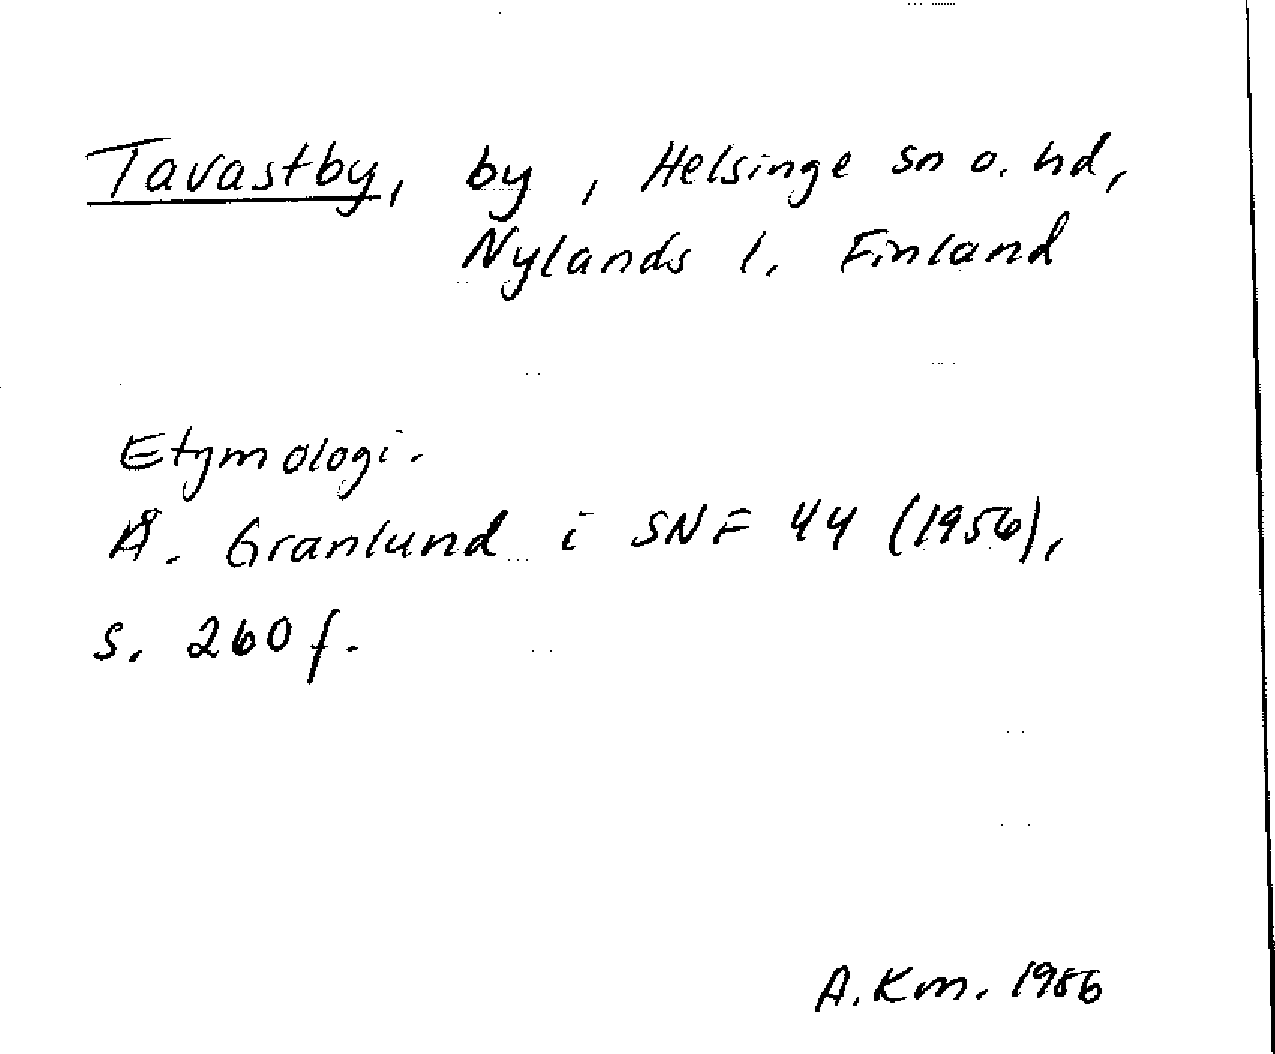 Tavastby, by, Helsinge sn o. hd,
Nylands l. Finland
Etymologi.
Å. Granlund i SNF 44 (1956),
s. 260 f.
A. Km. 1986